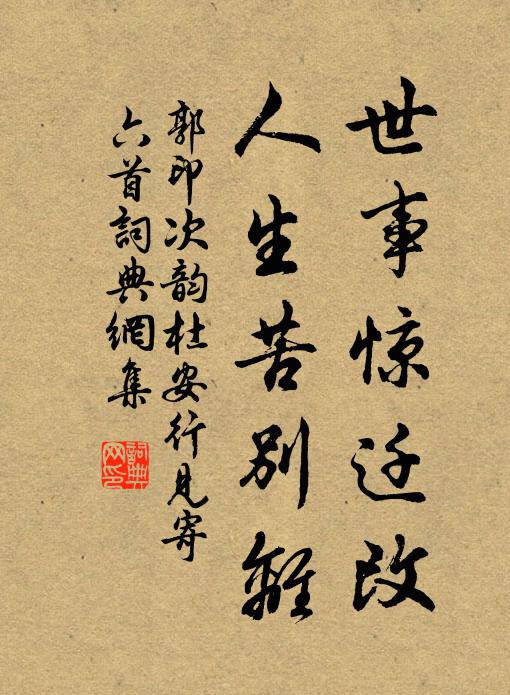 世事惊迁改
人生苦别離
郭印次韵杜安行見寄
六首詞典網集
詞典
网印